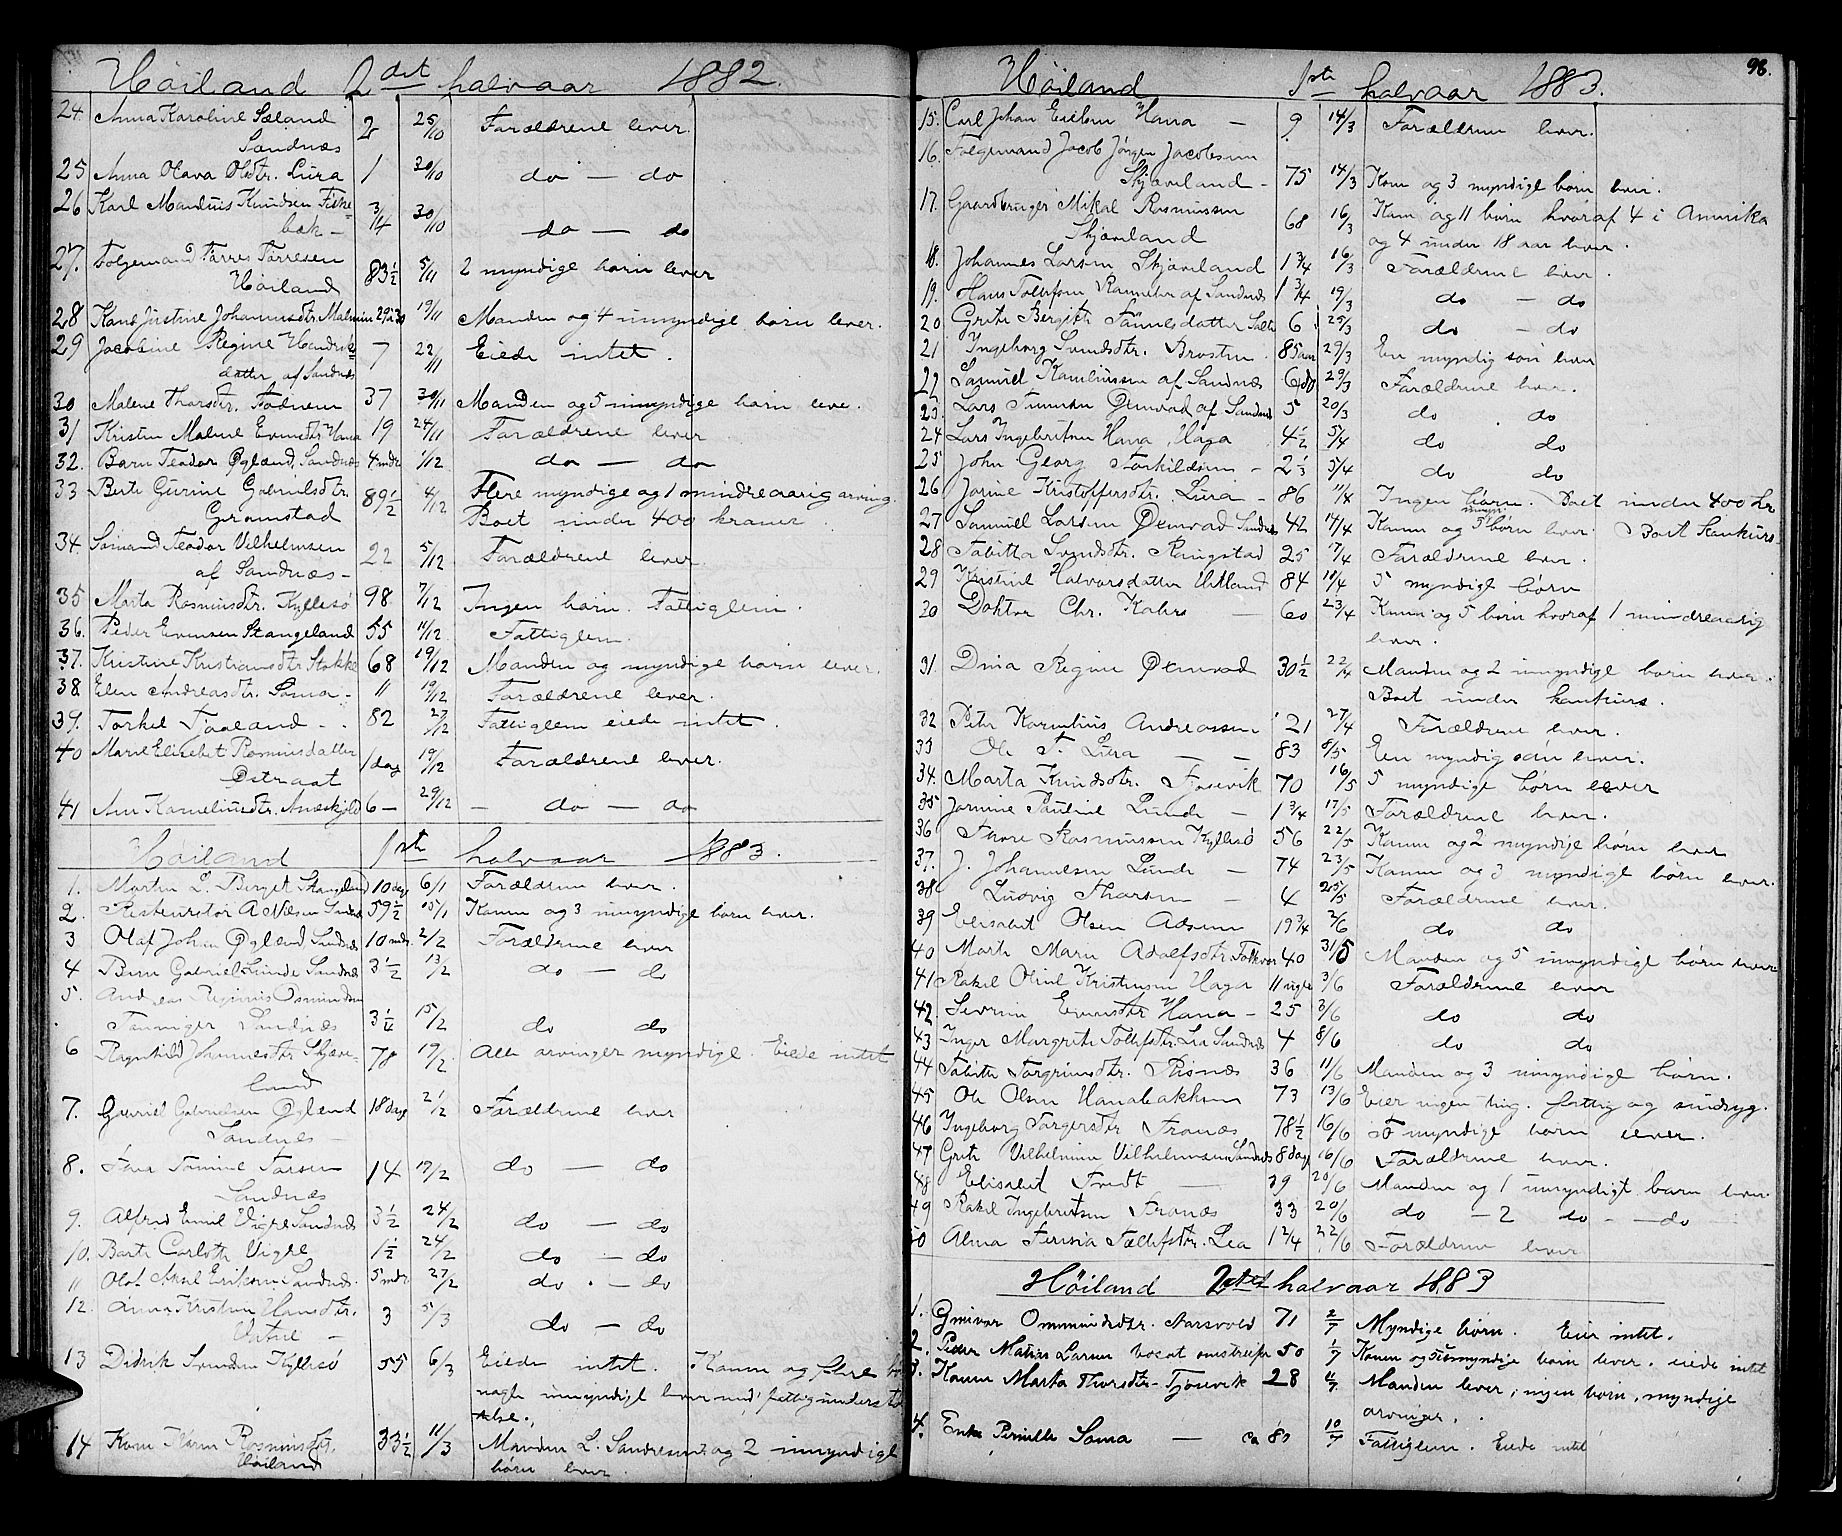 Høiland 2det halvaar 1882.
24. Anna Karoline Sæland
Sandnæs 2 25/10 Forældrene lever.
25 Anna Olava Olsdtr. Lura 1 30/10 do - do
26 Karl Mandius Knudsen Fiske-
bæk - 3/14 30/10 do - do
27. Folgemand Tørres Tørresen
Høiland 83½ 5/11 2 myndige børn lever
28 Kone Justine Johannesdtr Malmin 29 à 30 19/11 Manden og 4 umyndige børn lever.
29 Jacobine Regine Hendriks-
datter af Sandnæs 7 22/11 Eiede intet.
30 Malene Thorsdtr. Fodnem 37 30/11 Manden og 5 umyndige børn leve.
31 Kristen Malene Evendtr Hana 19 24/11 Forældrene lever
32. Barn Teodor Øglænd, Sandnæs 4 mdr 1/12 do - do
33 Berte Gurine Gabrielsdtr.
Gramstad 89½ 4/12 Flere myndige og 1 mindreaarig arving.
Boet under 400 kroner.
34. Sømand Teodor Vilhelmsen
af Sandnæs - 22 5/12 Forældrene lever.
35 Marta Rasmusdtr. Kyllesø 98 7/12 Ingen børn. Fattiglem.
36. Peder Evensen Stangeland 55 11/12 Fattiglem.
37. Kristine Kristiansdtr Stokke 68 19/12 Manden og myndige børn lever.
38 Elen Andreasdtr. Soma - 11 19/12 Forældrene lever.
39. Torkel Tjaaland - 82 27/12 Fattiglem eiede intet.
40 Marie Elisebet Rasmusdatter
Østraat 1 dag 19/12 Forældrene lever.
41 Ane Korneliusdtr. Aneskjold 6 - 29/12 - do - do
Høiland 1ste halvaar 1883.
1. Martin L. Berget Stangeland 10 dage 6/1 Forældrene lever.
2. Restauratør A Nilsen Sandnæs 59½ 15/1 Konen og 3 umyndige børn lever.
3 Olaf Johan Øglend Sandnæs 10 mdr 2/2 Forældrene lever
4 Barn Gabriel Lunde Sandnæs 3½ 13/2 do - do
5. Andreas Reginius Osmundsen
Sandnæs 3¼ 15/2 do do
6 Ragnhild Johannesdtr Skjæve-
land 78 19/2 Alle arvinger myndige. Eiede intet
7. Gabrielsen Øglænd
Sandnes - 18 dage 21/2 Forældrene lever
8. Tomine Larsen
Sandnæs 14 19/2 do - do
9. Alfred Emil Vigre Sandnæs 3½ 24/2 do - do
10. Barte Carlotte Vigre 1½ 24/2 do - do
11 Olaf Aksel Eriksen Sandnæs. 5 mdr 27/2 do. - do
12. Anna Kristine Hansdtr.
- 3 5/3 do - do
13 Didrik Svendsen Kyllesø 55 6/3 Eiede intet. Konen og flere
nogle umyndige lever med fattigunderstøt-
telse.
14 Kone Karen Rasmusdtr.
Høiland 33½ 11/3 Manden L. Sandresen og 2 umyndige
børn lever.
98.
Høiland 1ste halvaar 1883.
15. Carl Johan Eielsen Hana - 9 14/3 Forældrene lever.
16. Folgemand Jacob Jørgen Jacobsen
Skjæveland - 75 14/3 Kone og 3 myndige børn lever.
17. Gaardbruger Mikal Rasmussen
Skjæveland 68 16/3 Kone og 11 børn hvoraf 4 i Amerika
og 4 under 18 aar lever.
18. Johannes Larsen Skjæveland 1¾ 16/3 Forældrene lever.
19. Hans Tollefsen af Sandnæs 1¾ 19/3 do - do
20 Grete Bergitte Tønnesdatter 6 25/3 do - do
21 Ingeborg Svendsdtr. Brosten 85 aar 29/3 En myndig søn lever
22 Samuel Kornliussen af Sandnæs 6 do 29/3 Forældrene lever.
23. Lars Ømvad af Sandnæs 5 20/3 do do
24 Lars Ingebritsen Hana, Haga 4½ 5/4 do do
25 John Georg Torkildsen - 2⅓ 5/4 do do
26 Jorine Kristoffersdtr. Lura - 86 11/4 Ingen børn. Boet under 400 kr
27 Samuel Larsen Ømvad Sandnæs 42 14/4 Konen og 5 umyn. børn lever. Boet Konkurs.
28 Tabitta Svendsdtr. Ringstad 25 17/4 Forældrene lever.
29 Kristine Halvorsdatter 84 18/4 5 myndige børn
30 Doktor Chr. Kahrs - 60 23/4 Konen og 5 børn hvoraf 1 mindreaarig
lever.
31 Dina Regine Ømvad 30½ 22/4 Manden og 2 umyndige børn lever.
Boet under konkurs.
32 Peter Kornelius Andreassen 21 27/4 Forældrene lever.
33 Ole T. Lura - - 83 8/5 Een myndig søn lever.
34. Marta Knudsdtr. Fosevik 70 16/5 5 myndige børn lever
35 Jonine Pauline Lunde - 1¾ 17/5 Forældrene lever.
36 Thore Rasmussen Kyllesø 56 22/5 Konen og 2 myndige børn lever
37. J. Johannesen Lunde - 74 23/5 Konen og 3 myndige børn lever.
38 Ludvig Thorsen - 4 25/5 Forældrene lever.
39 Elisabet Olsen Adsem 19¾ 2/6 do do
40 Marte Marie Adolfsdtr Folkvor 40 31/5 Manden og 5 umyndige børn lever
41 Rakel Oline Kristensen Haga 11 uger 3/6 Forældrene lever
42. Severine Evensdtr Hana - 25 3/6 do do
43 Inger Margrete Tollefsdtr. Lea Sandnæs 4 8/6 do do
44 Tabitte Torgrimsdtr. Risnæs 36 11/6 Manden og 3 umyndige børn.
45 Ole Olsen Hanabakken 73 13/6 Eier ingen ting. fattig og sindsyg.
46 Ingeborg Torgersdtr Tronæs 78½ 16/6 5 myndige børn lever.
47 Grete Vilhelmine Vilhelmsen Sandnæs 8 dage 16/6 Forældrene lever.
48 Elisabet Tredt - 39 20/6 Manden og 1 umyndigt barn lever.
49 Rakel Ingebritsen Tronæs 33 20/6 do - 2 do - - do
50 Alma Terisia Tollefsdtr. Lea 1 2/4 22/6 Forældrene lever
Høiland 2det halvaar 1883
1. Gunvor Ommundsdtr. Aarsvold 71 2/7 Myndige børn. Eier intet.
2. Peder Matias Larsen bosat omstreifer 50 1/7 Konen og 5 umyndige børn lever. eiede intet
3. Konen Marta Thorsdtr. Tjosevik 28 4/7 Manden lever, ingen børn, myndige
arvinger.
4. Enke Pernille Soma - ca 80 10/7 Fattiglem. Eiede intet